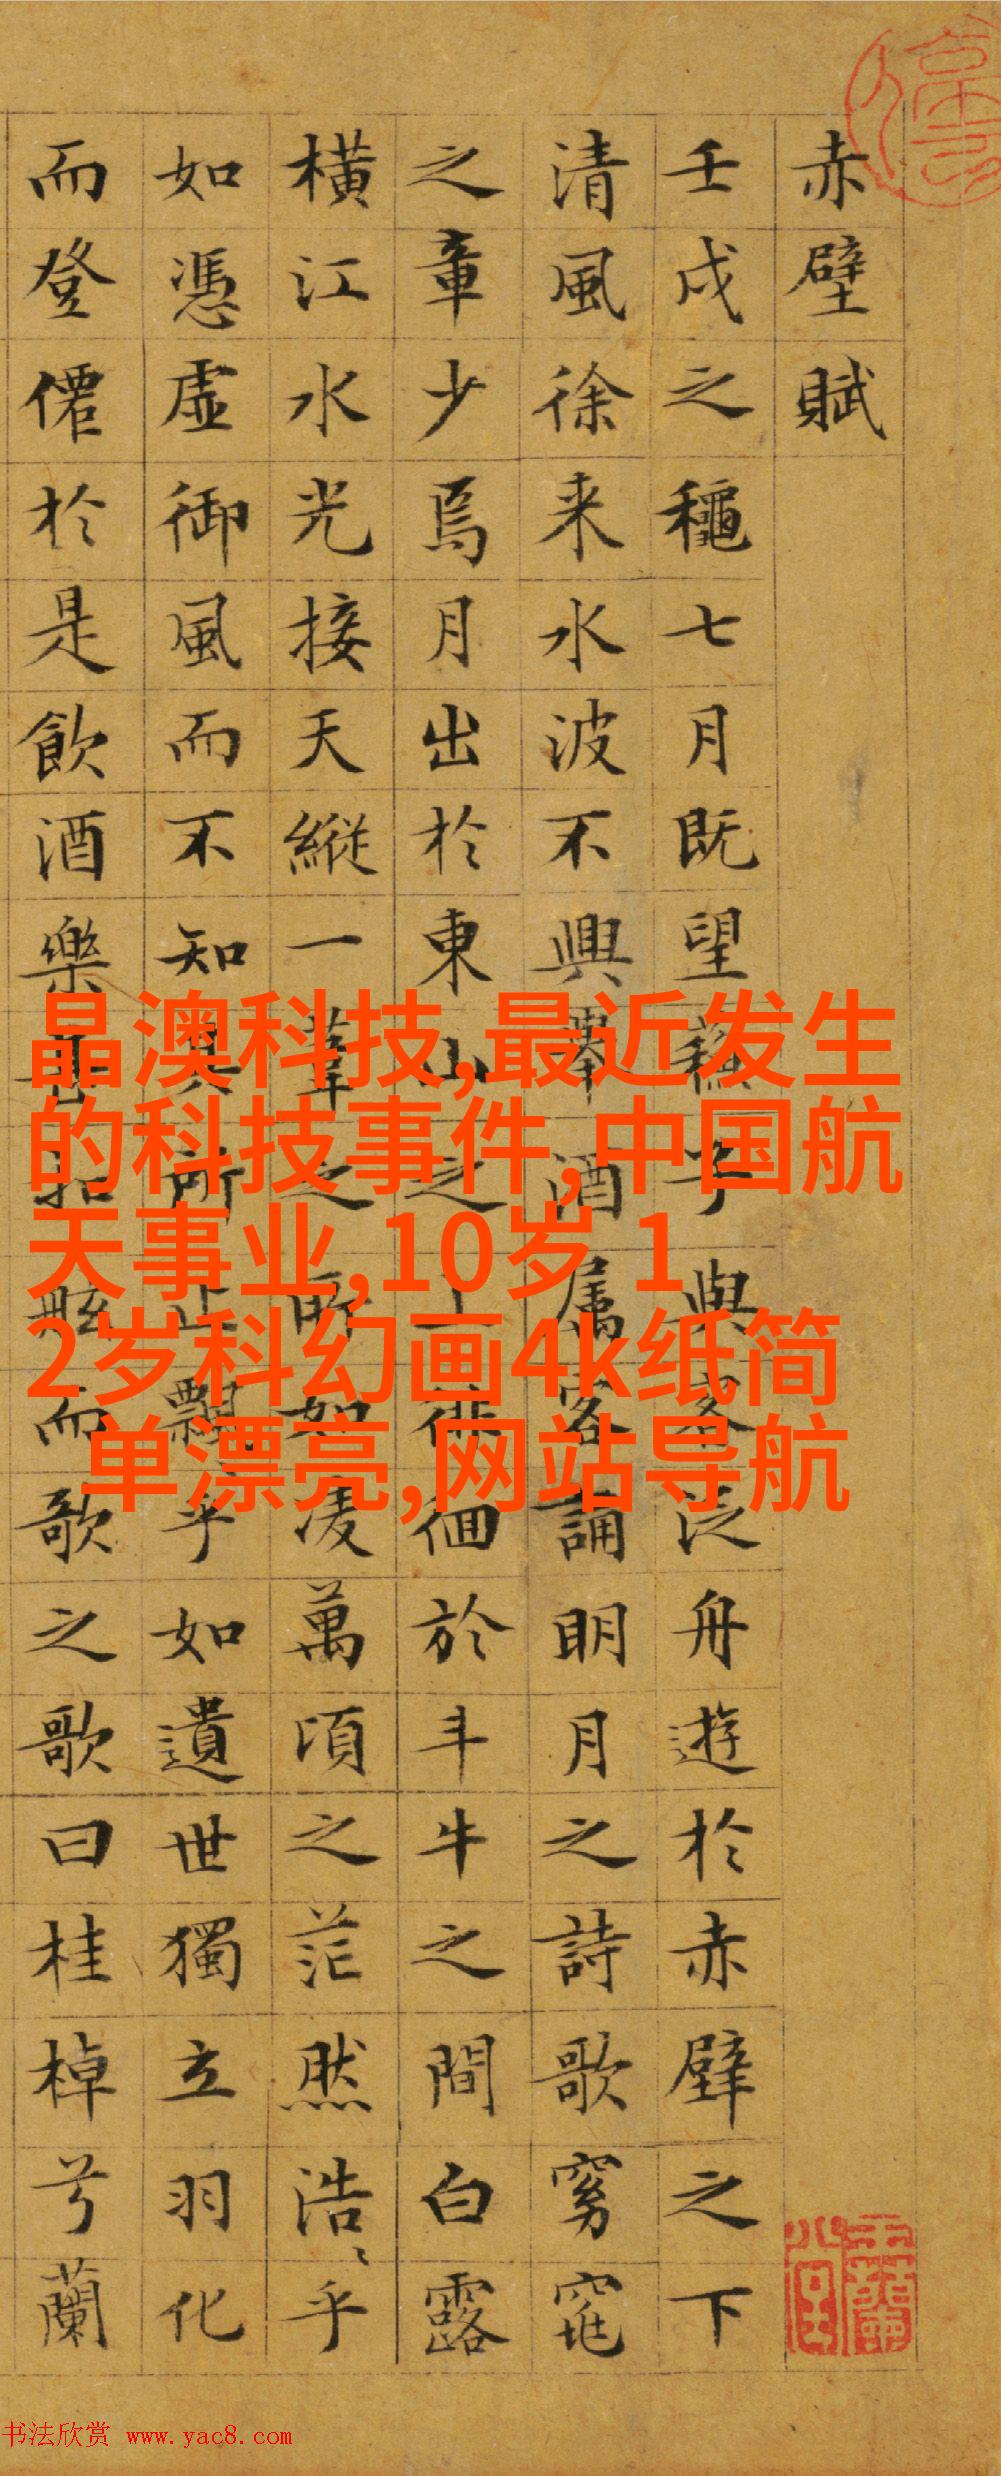 赤壁賦
壬戌之穐七月既望蘇子與客泛舟遊於赤壁之下
清風徐来水波不興舉酒属客誦明月之詩歌窈窕
之章少焉月出於東山之上徘徊於斗牛之間白露
橫江水光接天縱一葦之所如凌萬頃之茫然浩〻乎
如憑虛御風而不知其所止飄乎如遺世獨立羽化
而登僊於是飲酒樂甚扣舷而歌之歌曰桂棹兮蘭
晶澳科技,最近发生
的科技事件,中国航
天事业,10岁 1
2岁科幻画4k纸简
单漂亮,网站导航
书法欣赏 www.yac8.com